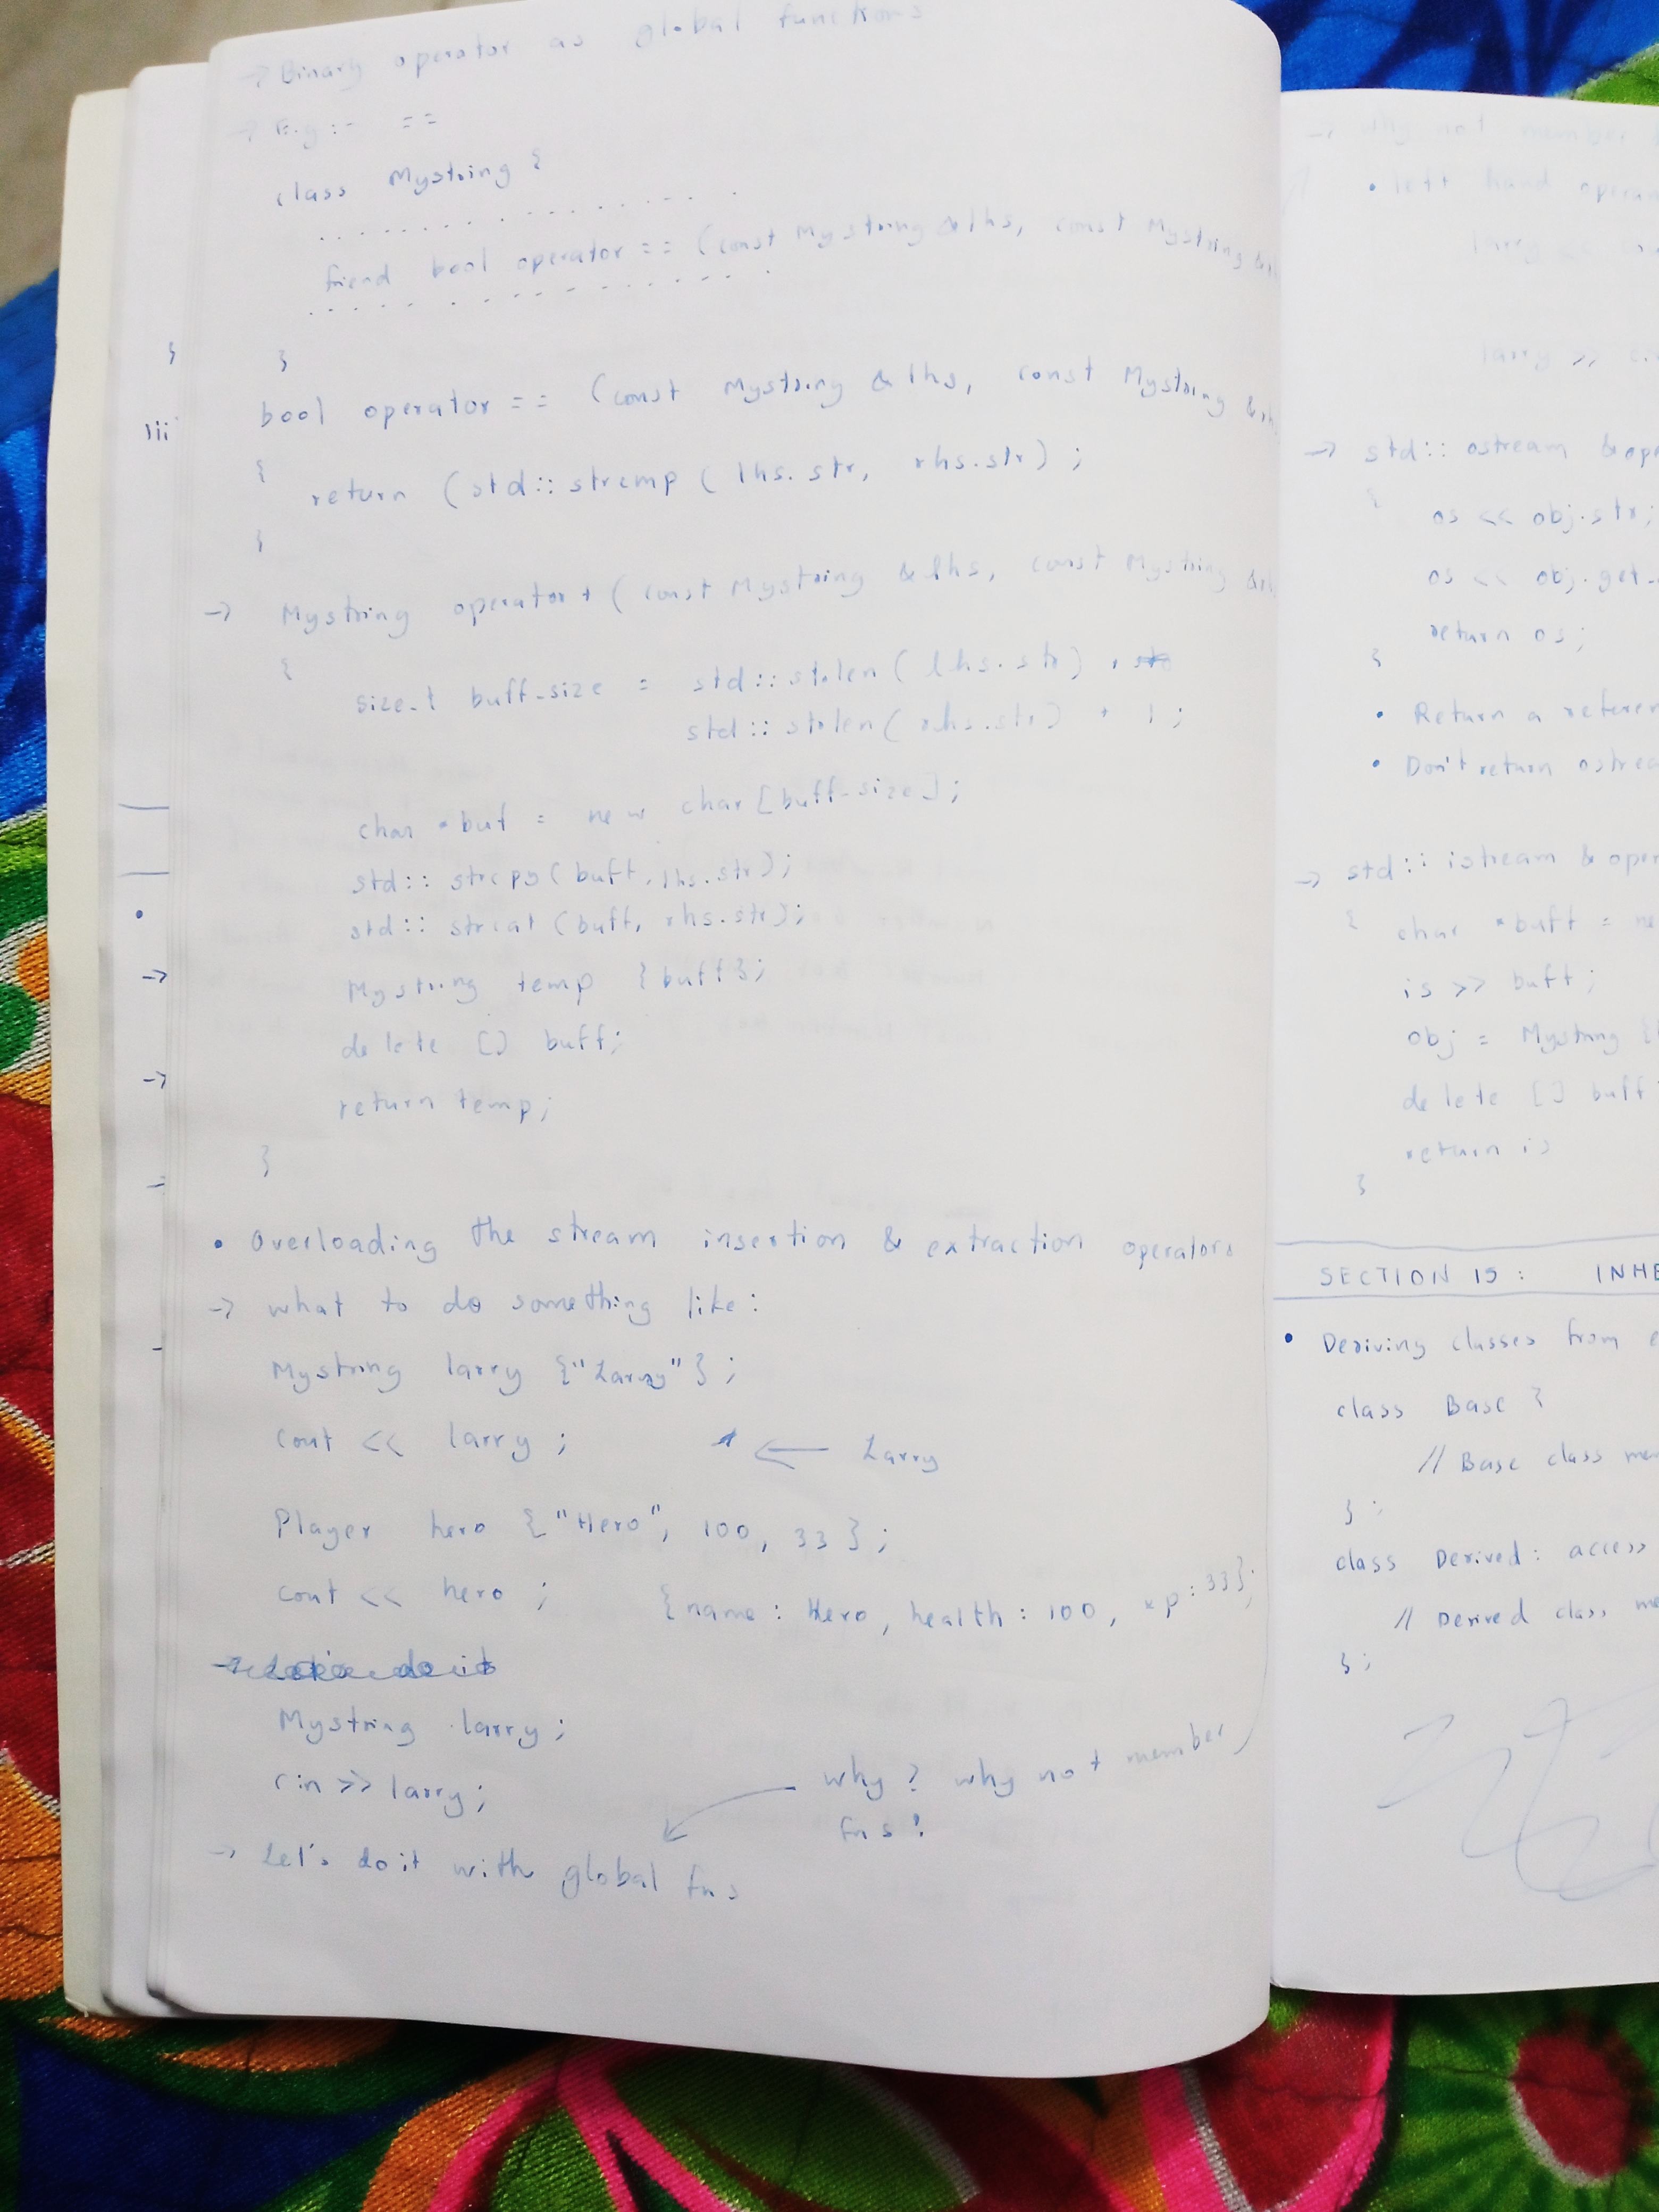 → Binary operator as global functions
→ E.g :- ==
class Mystring {
. . . . . . . . . . . . . . .
friend bool operator == (const Mystring &lhs, const Mystring
. . . . . . . . . . . . . . .
}
bool operator == (const Mystring &lhs, const Mystring
{
return (std::strcmp ( lhs.str, rhs.str) ;
}
→ Mystring operator + ( const Mystring &lhs, const Mystring
{
size_t buff-size = std :: strlen ( lhs.str) +
std :: strlen ( rhs.str) + 1 ;
char *buf = new char [buff-size];
std :: strcpy ( buff, lhs.str);
std :: strcat (buff, rhs.str);
Mystring temp {buff};
delete [] buff;
return temp;
}
• Overloading the stream insertion & extraction operators
→ what to do something like :
Mystring larry {"Larry"} ;
cout << larry ; ← Larry
Player hero {"Hero", 100, 33 } ;
cout << hero ; {name : Hero, health : 100, xp : 33};
Mystring larry ;
cin >> larry;
why ? why not member
fns !
→ Let's do it with global fns
}
iii
→
→
→ why not member
• left hand
larry <<
larry >>
→ std :: ostream
{
os << obj.str;
os << obj.
return os;
}
• Return a
• Don't return
→ std :: istream &
{ char *buff =
is >> buff ;
obj = Mystring {
delete [] buff
return is
}
SECTION 15 :
• Deriving classes from
class Base {
// Base class
} ;
class Derived : access
// Derived class
} ;